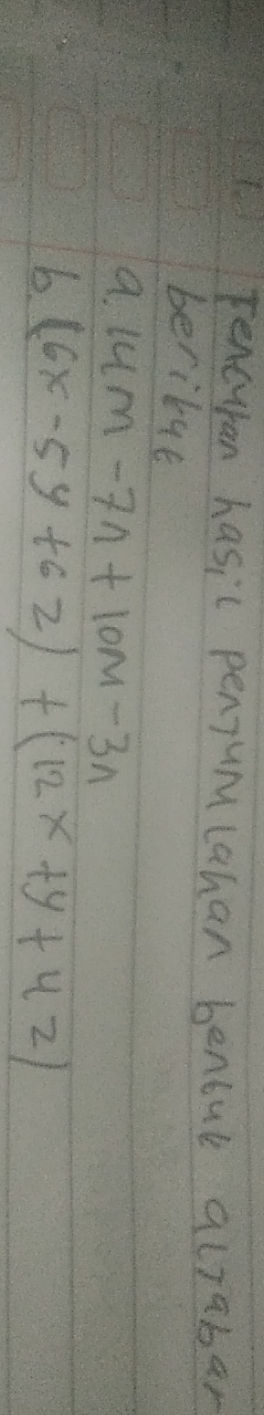 Tentukan hasil penjumlahan bentuk aljabar
berikut
a. 14m - 7n + 10m - 3n
b. (6x - 5y + 6z) + (12x + y + 4z)